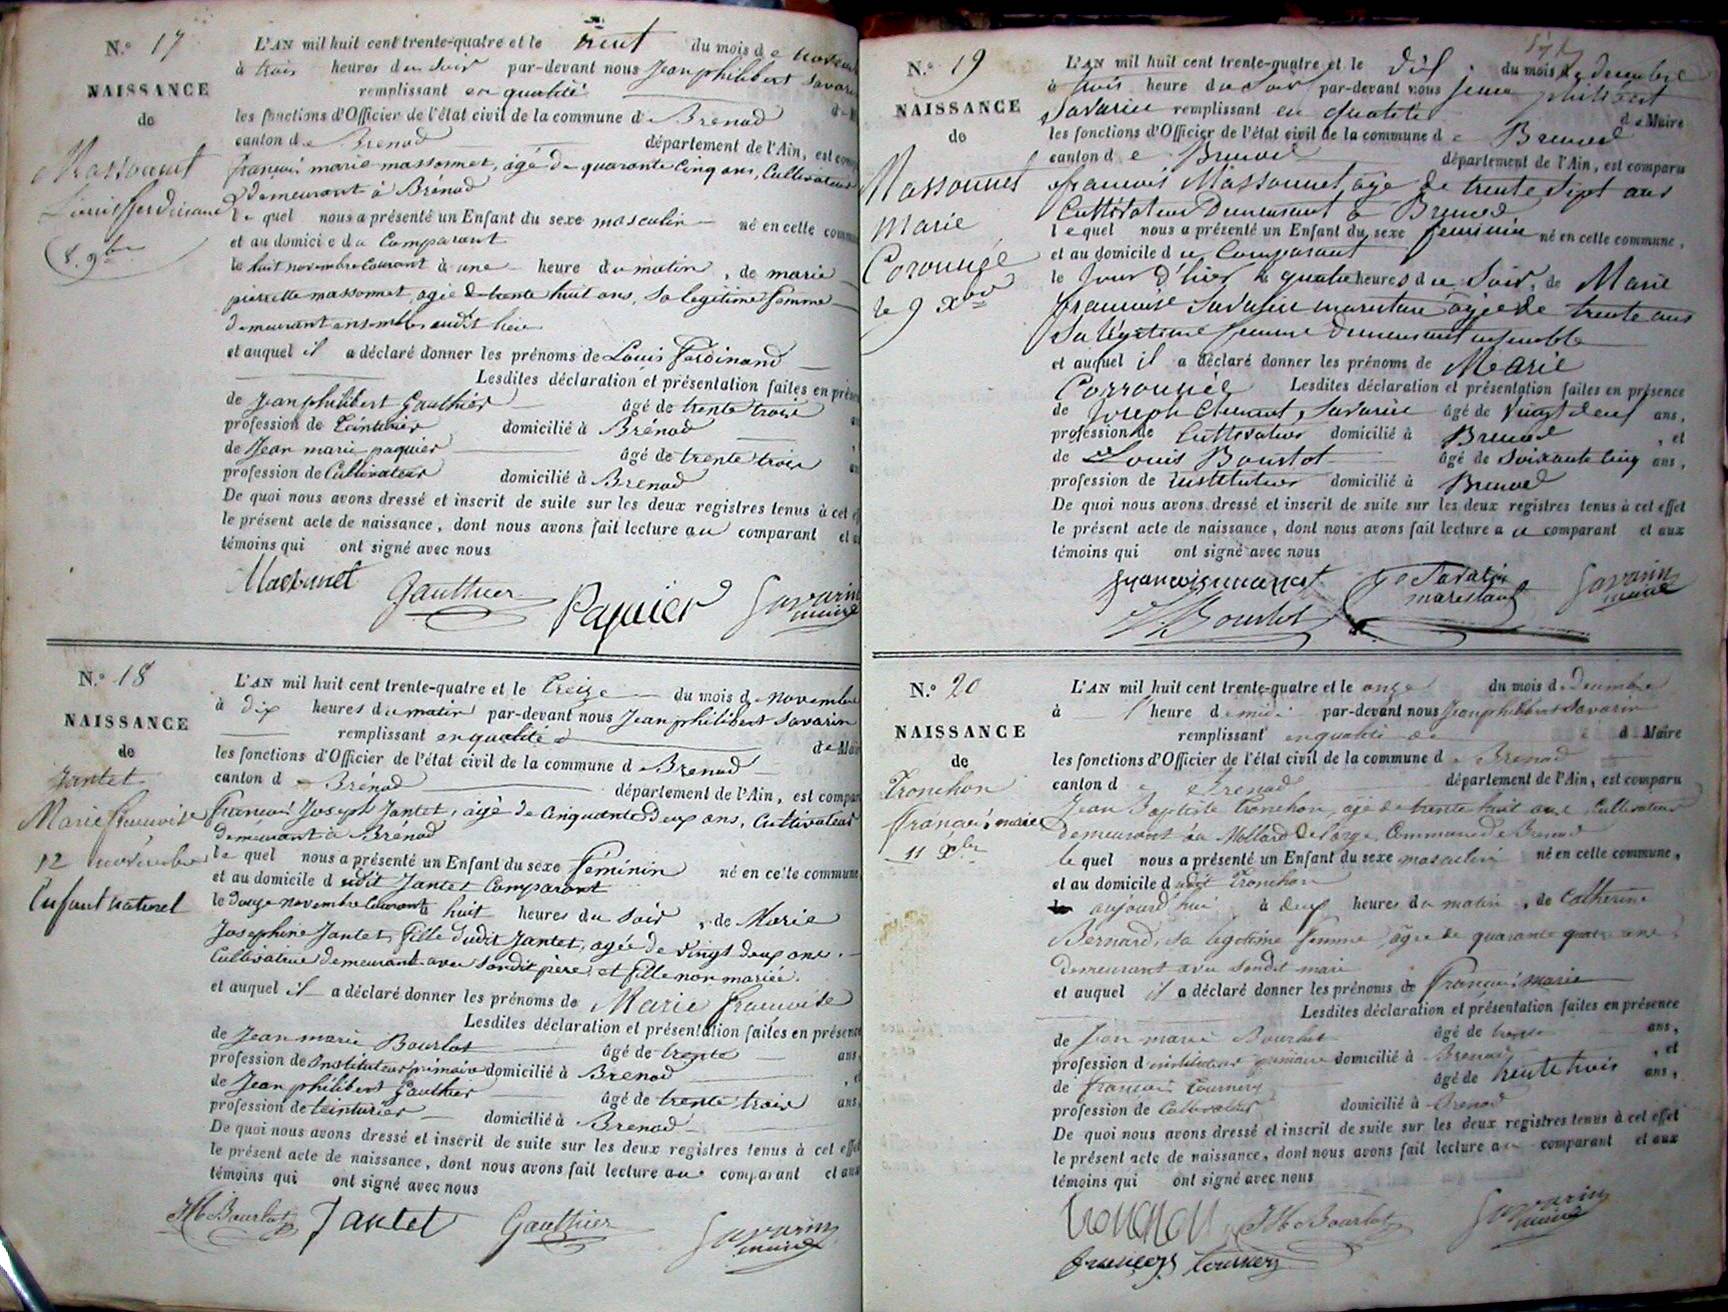 N.° 17
NAISSANCE
de
Massonnet
Louis ferdinand
8. 9bre
L'AN mil huit cent trente-quatre et le neuf du mois de novem
à trois heures du soir par-devant nous Jean philibert Savarin
remplissant en qualité
les fonctions d'Officier de l'état civil de la commune d e Brenod
canton d e Brenod département de l'Ain, est comp
françois marie massonnet, âgé de quarante cinq ans, Cultivateur
demeurant à Brénod
le quel nous a présenté un Enfant du sexe masculin né en cette commu
et au domicile du Comparant
le huit novembre Courant à une heure du matin, de marie
pierrette massonnet, agée de trente huit ans, sa legitime femme
demeurant ensemble audit lieu
et auquel il a déclaré donner les prénoms de Louis Ferdinand
Lesdites déclaration et présentation faites en prése
de Jean philibert Gauthier âgé de trente trois
profession de teinturier domicilié à Brénod
de Jean marie paquier âgé de trente trois
profession de Cultivateur domicilié à Brénod
De quoi nous avons dressé et inscrit de suite sur les deux registres tenus à cet eff
le présent acte de naissance, dont nous avons fait lecture au comparant et a
témoins qui ont signé avec nous
Massonnet Gauthier Paquier Savarin
maire
N.° 18
NAISSANCE
de
Jantet
Marie françoise
12 novembre
Enfant naturel
L'AN mil huit cent trente-quatre et le treize du mois de novembre
à dix heures du matin par-devant nous Jean philibert Savarin
remplissant en qualité d
de Mair
les fonctions d'Officier de l'état civil de la commune d e Brenod
canton d e Brénod département de l'Ain, est compar
françois Joseph Jantet, âgé de Cinquante deux ans, Cultivateur
demeurant à Brenod
le quel nous a présenté un Enfant du sexe féminin né en cette commune
et au domicile d udit Jantet Comparant
le douze novembre Courant à huit heures du soir, de Marie
Josephine Jantet, fille dudit Jantet, agée de vingt deux ans.
Cultivatrice demeurant avec sondit père, et fille non mariée.
et auquel il a déclaré donner les prénoms de Marie françoise
Lesdites déclaration et présentation faites en présence
de Jean marie Bourlot âgé de trente ans
profession de Instituteur primaire domicilié à Brenod
de Jean philibert Gauthier âgé de trente trois ans
profession de teinturier domicilié à Brenod
De quoi nous avons dressé et inscrit de suite sur les deux registres tenus à cet effet
le présent acte de naissance, dont nous avons fait lecture au comparant et aux
témoins qui ont signé avec nous
JM Bourlot Jantet Gauthier Savarin
maire
N.° 19
NAISSANCE
de
Massonnet
Marie
le 9 Xbre
L'AN mil huit cent trente-quatre et le dix du mois de decembre
à trois heure du soir par-devant nous Jean philibert
Savarin remplissant en qualité
d e Maire
les fonctions d'Officier de l'état civil de la commune d e Brenod
canton d e Brenod département de l'Ain, est comparu
françois Massonnet agé de trente sept ans
Cultivateur Demeurant à Brenod
lequel nous a présenté un Enfant du sexe feminin né en cette commune,
et au domicile d u Comparant
le Jour d'hier à quatre heures du Soir, de Marie
françoise Savarin marestan agée de trente ans
Sa légitime femme Demeurant ensemble
et auquel il a déclaré donner les prénoms de Marie
Lesdites déclaration et présentation faites en présence
de Joseph Clement Savarin âgé de vingt neuf ans,
profession de Cultivateur domicilié à Brenod, et
de Louis Bourlot âgé de Soixante cinq ans,
profession de instituteur domicilié à Brenod
De quoi nous avons dressé et inscrit de suite sur les deux registres tenus à cet effet
le présent acte de naissance, dont nous avons fait lecture a u comparant et aux
témoins qui ont signé avec nous
Savarin Savarin
marestan maire
Bourlot
N.° 20
NAISSANCE
de
Tronchon
françois marie
11 Xbre
L'AN mil huit cent trente-quatre et le onze du mois de decembre
à 1 heure de midi par-devant nous Jean philibert Savarin
remplissant en qualité de
d Maire
les fonctions d'Officier de l'état civil de la commune d e Brenod
canton d e Brenod département de l'Ain, est comparu
Jean Baptiste Tronchon, agé de trente huit ans Cultivateur
demeurant au Mollard de Commune de Brenod
le quel nous a présenté un Enfant du sexe masculin né en cette commune,
et au domicile d udit Tronchon
aujourd'hui à deux heures du matin, de Catherine
Bernard, sa legitime femme agée de quarante quatre ans
demeurant avec sondit mari
et auquel il a déclaré donner les prénoms de françois marie
Lesdites déclaration et présentation faites en présence
de Jean marie Bourlot âgé de trente ans,
profession d instituteur primaire domicilié à Brenod, et
de françois Tournery âgé de trente trois ans,
profession de Cultivateur domicilié à Brenod
De quoi nous avons dressé et inscrit de suite sur les deux registres tenus à cet effet
le présent acte de naissance, dont nous avons fait lecture au comparant et aux
témoins qui ont signé avec nous
tronchon JM Bourlot Savarin
maire
françois tournery